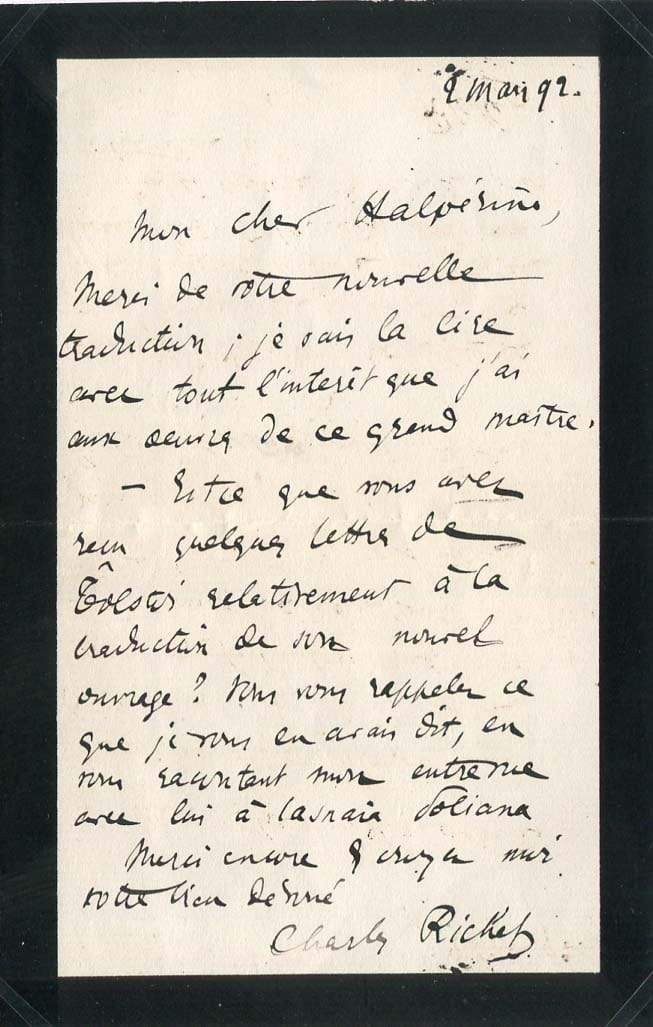 2 Mars 92.
Mon cher Halpérine,
Merci de votre nouvelle
traduction ; je vais la lire
avec tout l'interêt que j'ai
aux oeuvres de ce grand maître.
— Est ce que vous avez
recu quelques lettres de
Tolstoï relativement à la
traduction de son nouvel
ouvrage ? Vous vous rappelez ce
que je vous en avais dit, en
vous racontant mon entrevue
avec lui à Iasnaia Poliana
Merci encore & croyez moi
votre bien dévoué
Charles Richet